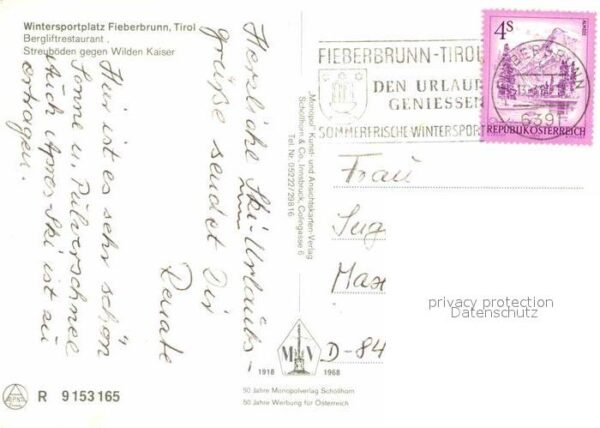 Wintersportplatz Fieberbrunn, Tirol
Bergliftrestaurant
Streuböden gegen Wilden Kaiser
Herzliche Ski-Urlaubs-
grüße sendet Dir
Renate
Hier ist es sehr schön
Sonne u. Pulverschnee
Auch Apres-Ski ist zu
ertragen.
"Monopol" Kunst- und Ansichtskarten-Verlag
Schöllhorn & Co. Innsbruck, Colingasse 6
Tel. Nr. 05222/29816
FIEBERBRUNN-TIROL
DEN URLAUB
GENIESSEN
SOMMERFRISCHE-WINTERSPORT
4S
6391
REPUBLIK ÖSTERREICH
Frau
Ing
Max
D-84
privacy protection
Datenschutz
1918 MV 1968
50 Jahre Monopolverlag Schöllhorn
50 Jahre Werbung für Österreich
R 9153165